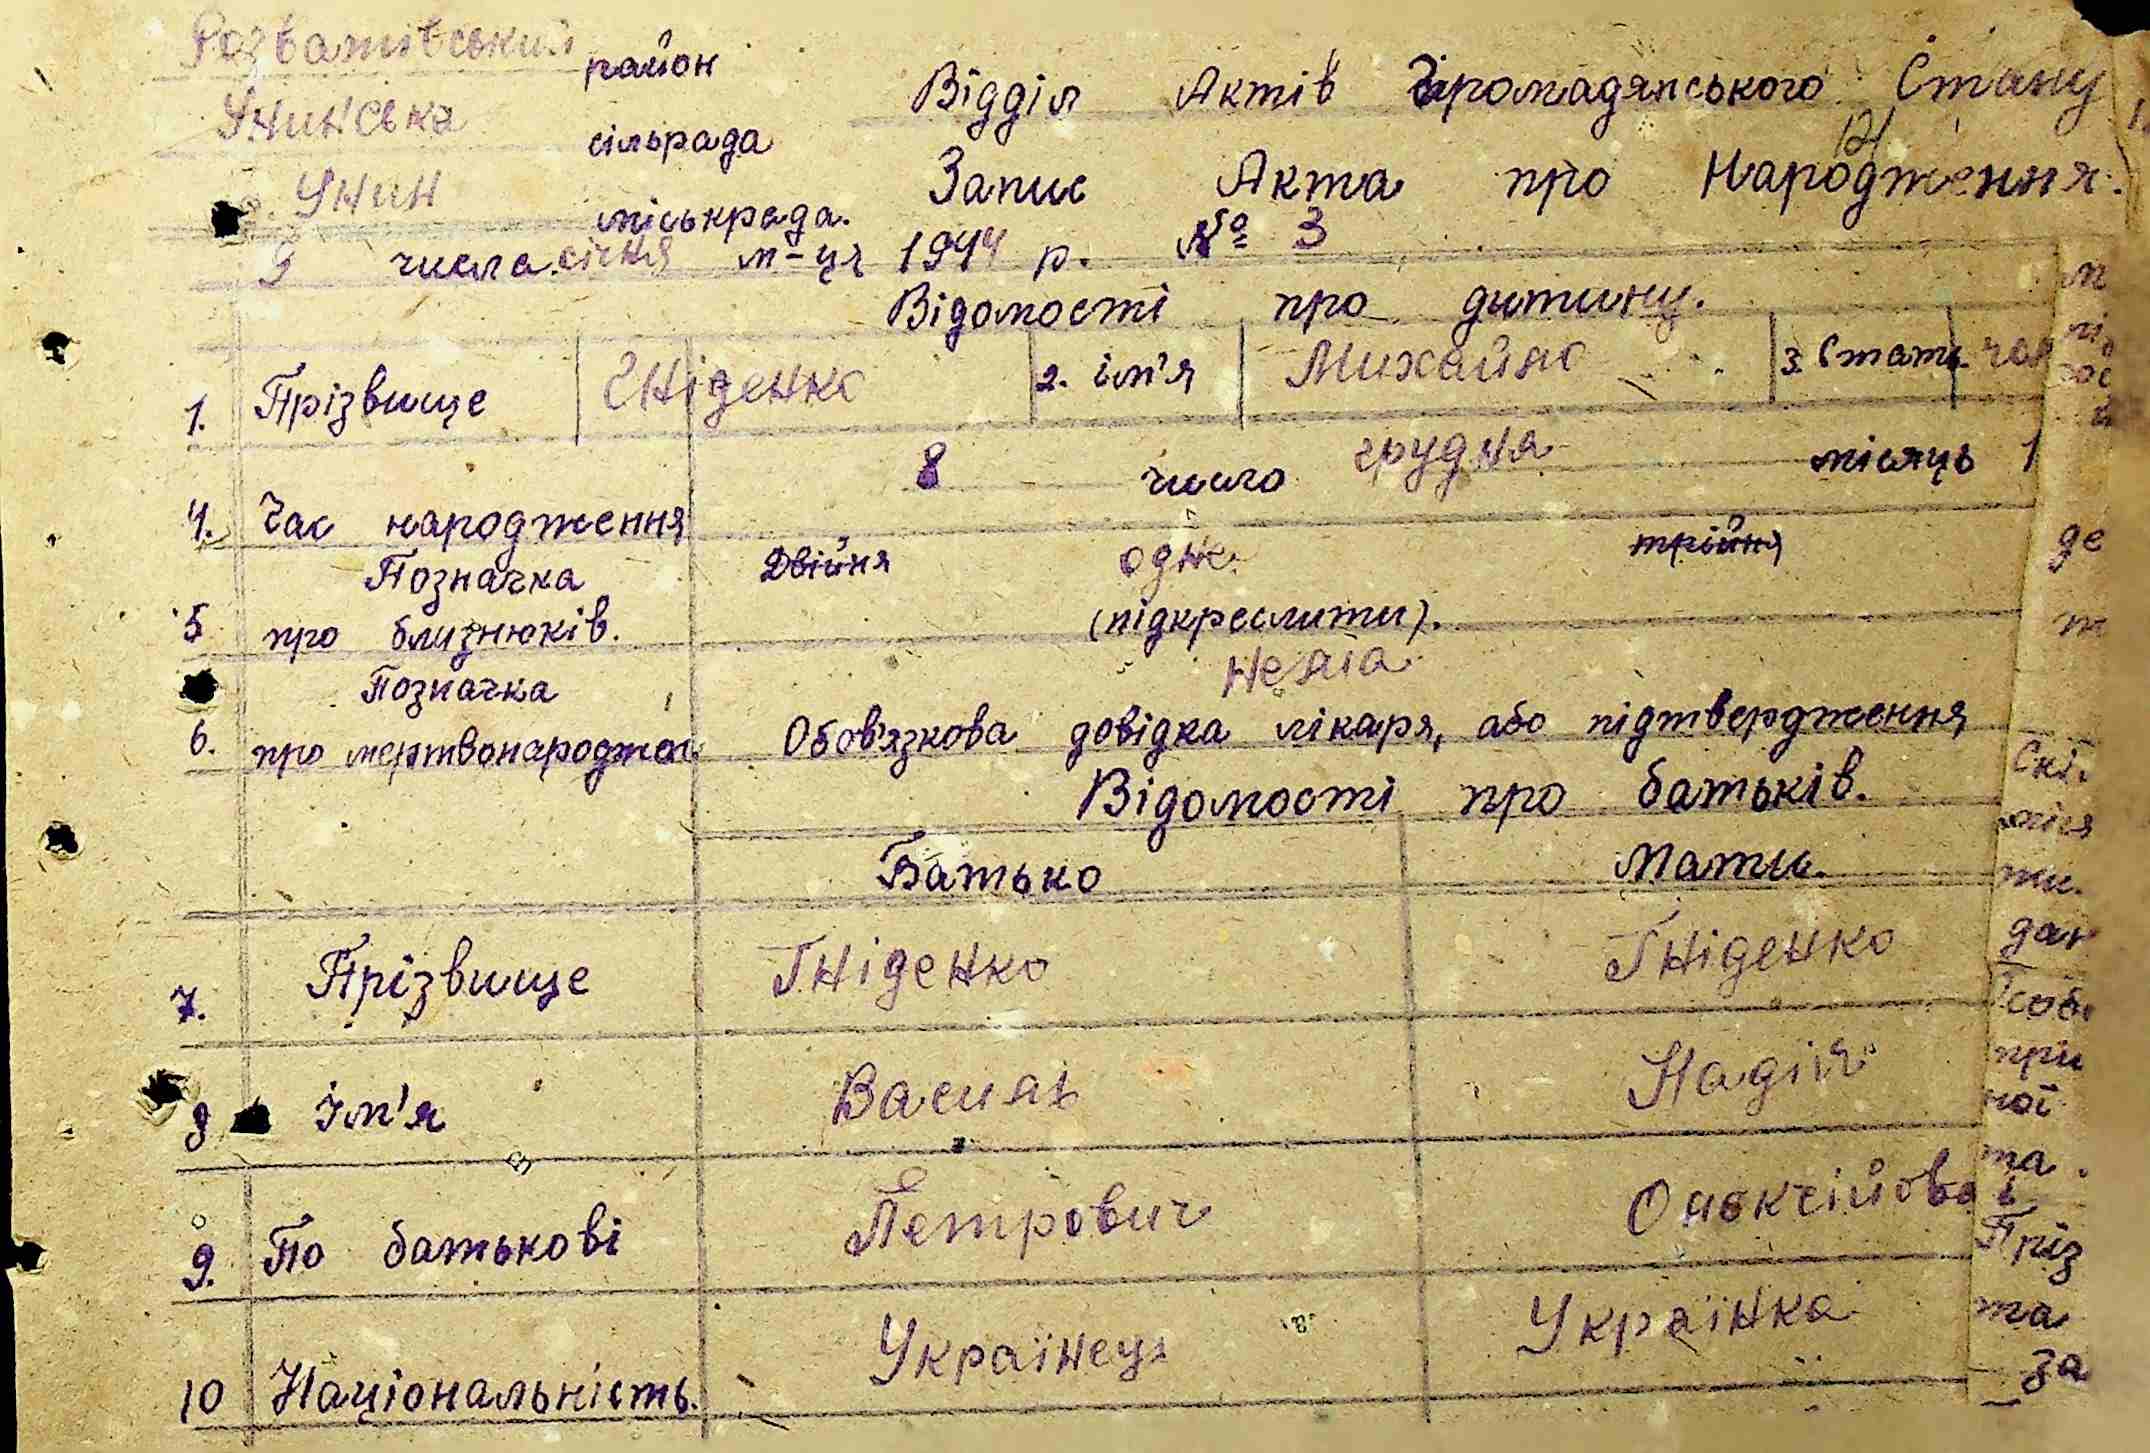 Розважівський район
Унинська сільрада
с. Унин міськрада.
Відділ Актів Громадянського Стану
Запис Акта про Народження.
9 числа січня м-ця 1944 р. № 3
Відомості про дитину.
1. Прізвище Гніденко 2. ім'я Михайло 3. Стать чол
4. Час народження 8 число грудня місяць 1
Позначка Двійня одне трійня
5 про близнюків. (підкреслити).
Позначка нема
6. про мертвонароджен Обов'язкова довідка лікаря, або підтвердження
Відомості про батьків.
Батько Мати.
7. Прізвище Гніденко Гніденко
8 Ім'я Василь Надія
9. По батькові Петрович
10 Національність. Українець Українка
де
Скі.
міся
жи.
дан
Особ.
при
ної
та
Пріз
та
За